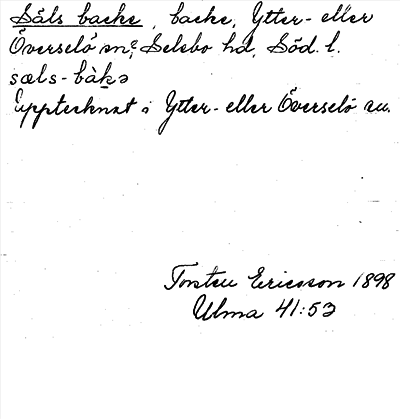 Säls backe, backe, Ytter- eller
Överselö snr, Selebo hd, Söd. l.
sæls-bàkə
Upptecknat i Ytter- eller Överselö sn.
Torsten Ericsson 1898
Ulma 41:53